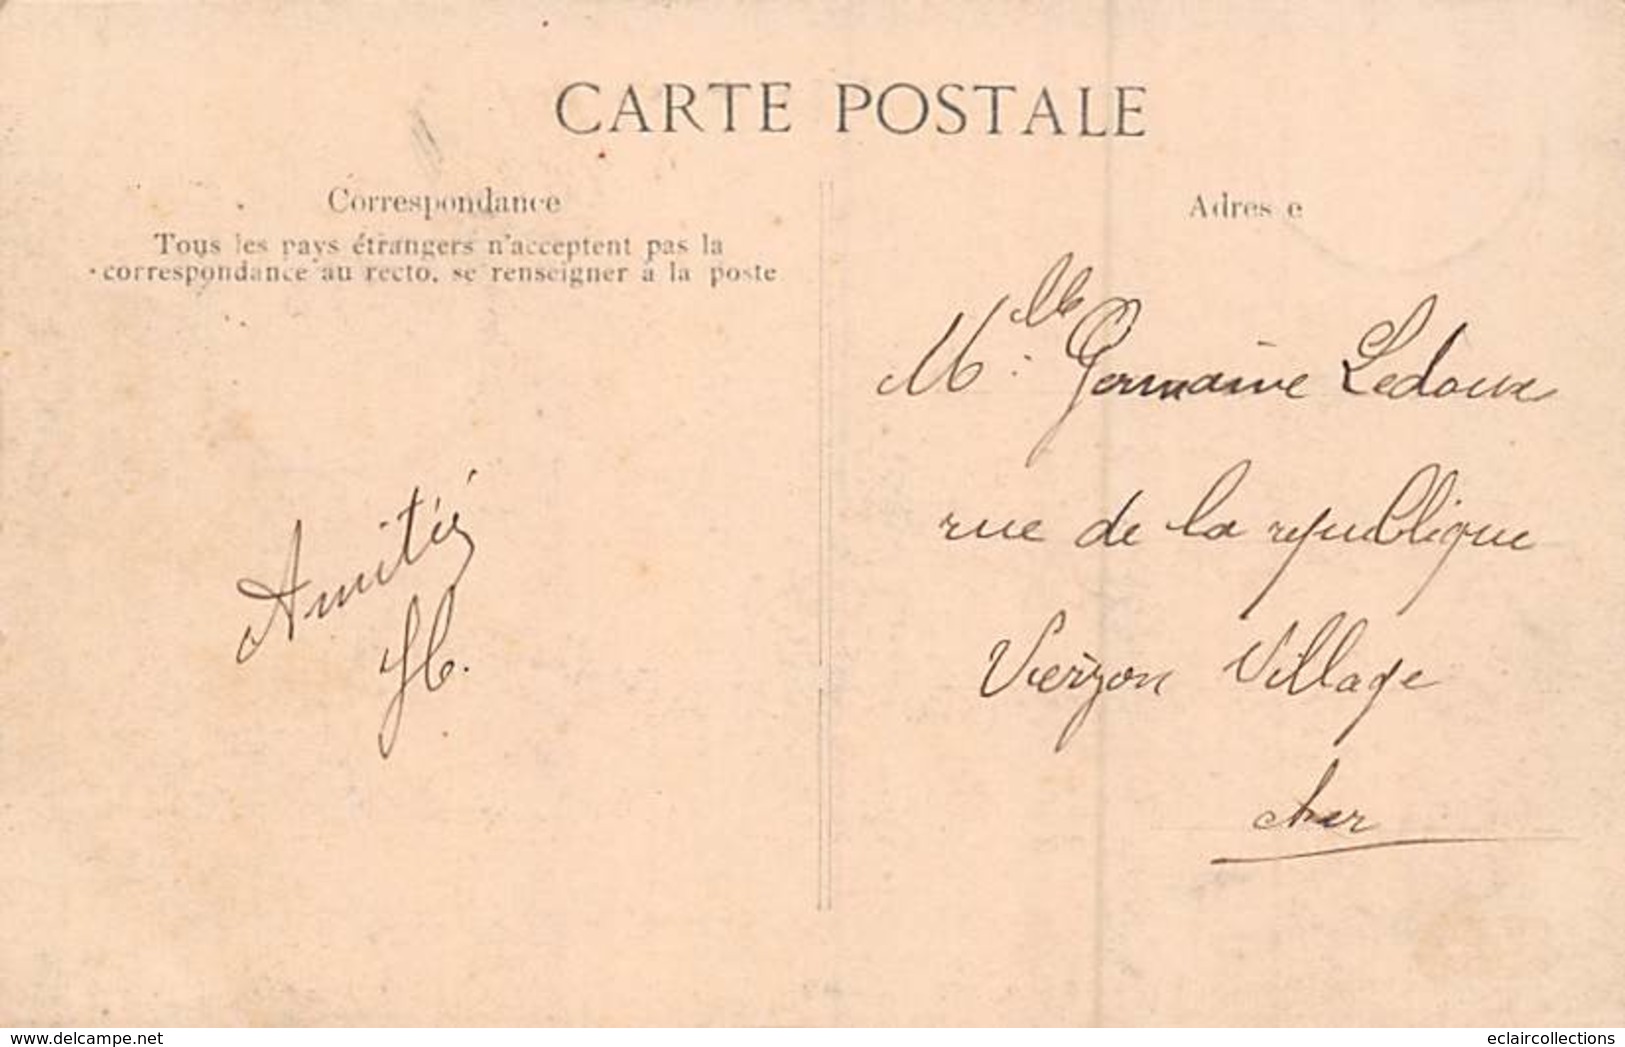 CARTE POSTALE
Correspondance
Tous les pays étrangers n'acceptent pas la
correspondance au recto, se renseigner à la poste
Amitiés
Adres e
Mlle. Germaine Ledoux
rue de la republique
Vierzon Village
cher
www.delcampe.net
eclaircollections